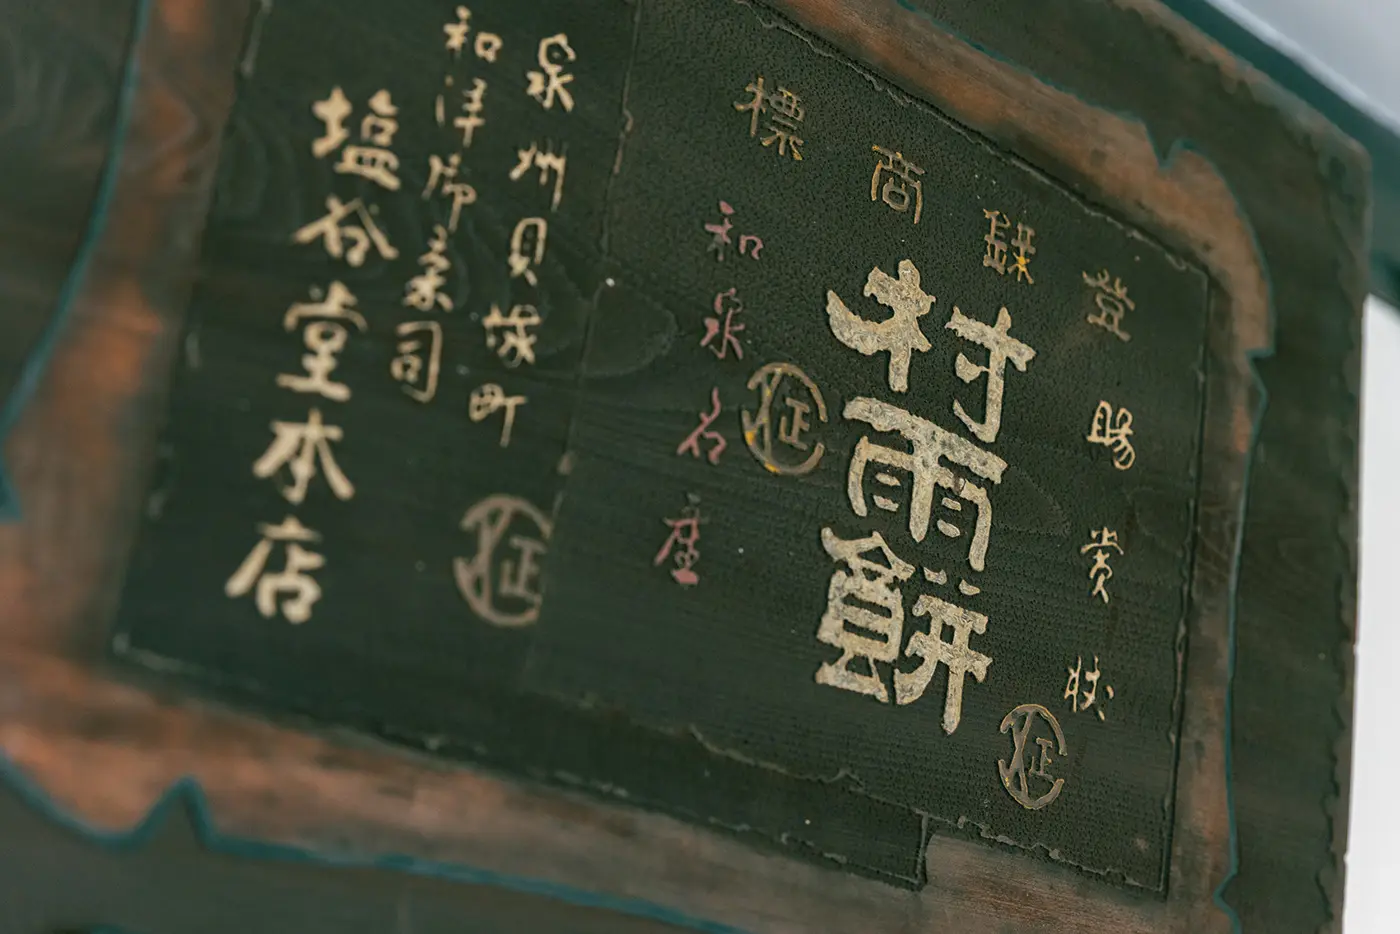 登録商標
賜賞状
村雨餅
和泉名産
泉州貝塚町
和洋御菓司
塩谷堂本店